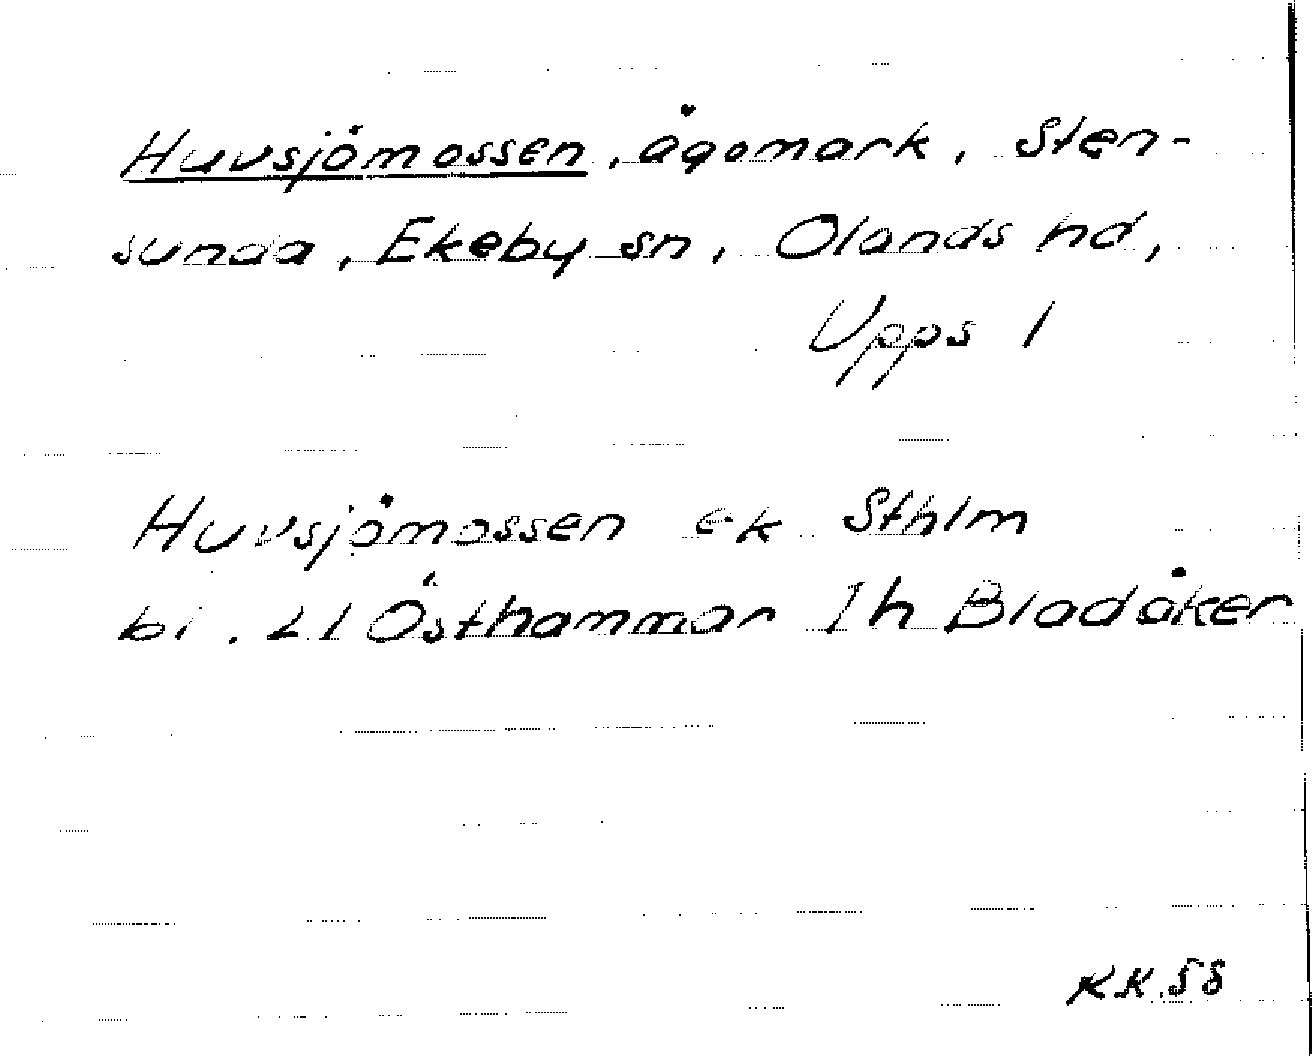 Huvsjömossen, ägomark, Sten-
sunda, Ekeby sn, Olands hd,
Upps l
Huvsjömossen ek Sthlm
bi. 21 Östhammar Ih Bladåker
KK.58